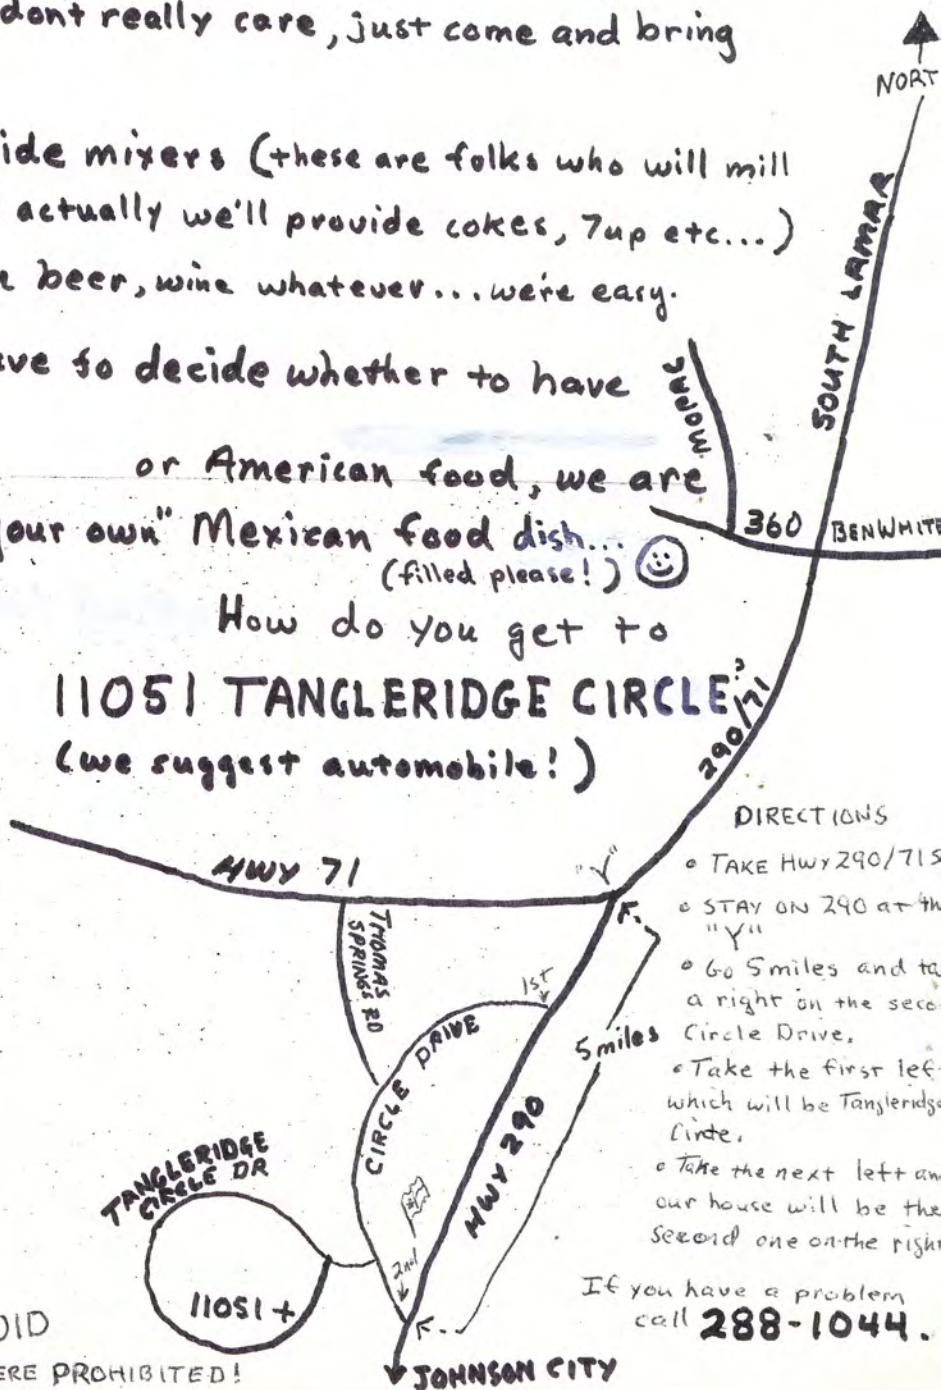 dont really care, just come and bring
NORT
ide mixers (these are folks who will mill
actually we'll provide cokes, 7up etc...)
beer, wine whatever... we're easy.
ve to decide whether to have
or American food, we are
our own" Mexican food dish...
(filled please!)
How do you get to
11051 TANGLERIDGE CIRCLE?
(we suggest automobile!)
SOUTH LAMAR
MOPAC
360
BEN WHITE
290/71
HWY 71
"Y"
THOMAS
SPRINGS RD
1st
CIRCLE DRIVE
5 miles
HWY 290
2nd
TANGLERIDGE
CIRCLE DR
11051 +
JOHNSON CITY
DIRECTIONS
• TAKE HWY 290/71 S
• STAY ON 290 AT th
"Y"
• Go 5 miles and ta
a right on the seco
Circle Drive.
• Take the first lef
which will be Tangleridge
Circle.
• Take the next left an
our house will be the
second one on the right
If you have a problem
call 288-1044.
OID
ERE PROHIBITED!